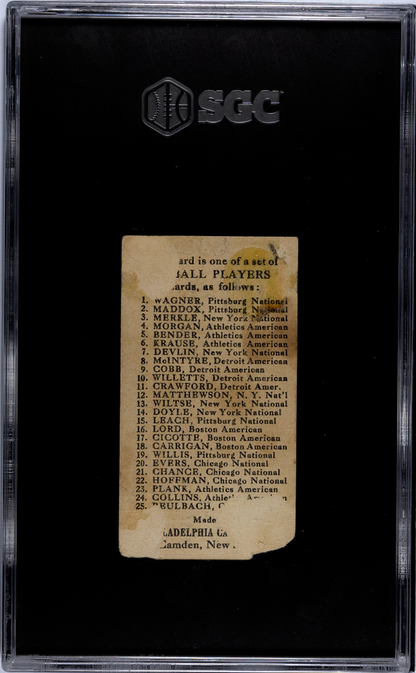 SGC
ard is one of a set of
BALL PLAYERS
ards, as follows:
1. WAGNER, Pittsburg National
2. MADDOX, Pittsburg National
3. MERKLE, New York National
4. MORGAN, Athletics American
5. BENDER, Athletics American
6. KRAUSE, Athletics American
7. DEVLIN, New York National
8. McINTYRE, Detroit American
9. COBB, Detroit American
10. WILLETTS, Detroit American
11. CRAWFORD, Detroit Amer.
12. MATTHEWSON, N. Y. Nat'l
13. WILTSE, New York National
14. DOYLE, New York National
15. LEACH, Pittsburg National
16. LORD, Boston American
17. CICOTTE, Boston American
18. CARRIGAN, Boston American
19. WILLIS, Pittsburg National
20. EVERS, Chicago National
21. CHANCE, Chicago National
22. HOFFMAN, Chicago National
23. PLANK, Athletics American
24. COLLINS, Athle
25. REULBACH, C
Made
LADELPHIA CA
Camden, New